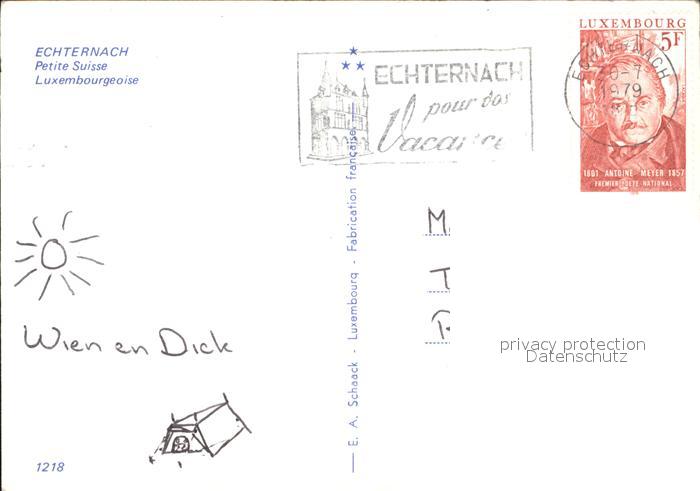 ECHTERNACH
Petite Suisse
Luxembourgeoise
ECHTERNACH
pour dos
Vacances
LUXEMBOURG
5F
ECHTERNACH
1979
1801 ANTOINE MEYER 1857
PREMIER POETE NATIONAL
E. A. Schaack - Luxembourg - Fabrication française
M.
T
Wien en Dick
privacy protection
Datenschutz
1218